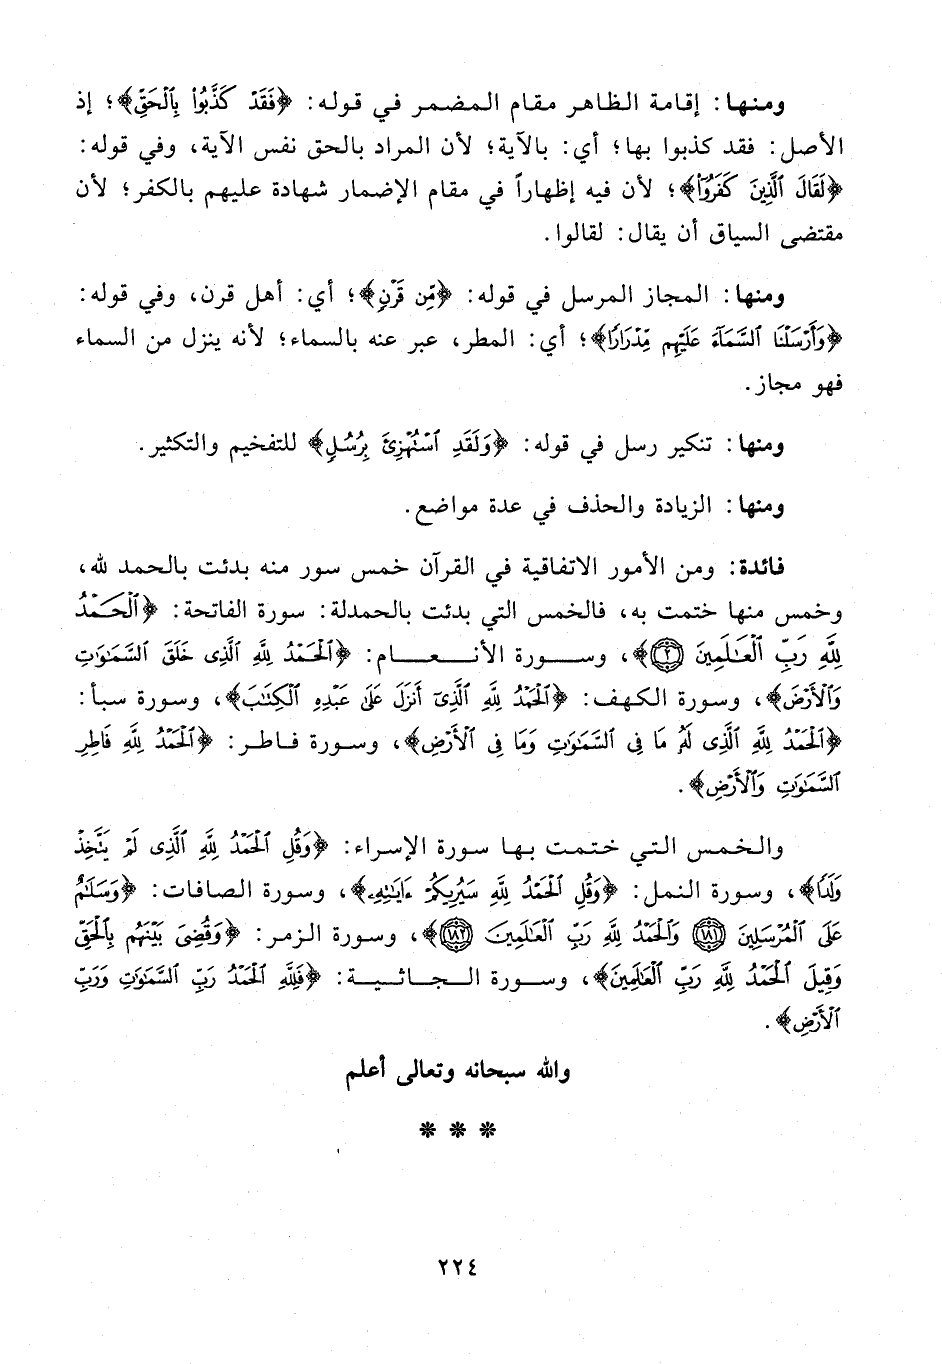 ومنها: إقامة الظاهر مقام المضمر في قوله: ﴿فَقَدْ كَذَّبُوا۟ بِٱلْحَقِّ﴾؛ إذ
الأصل: فقد كذبوا بها؛ أي: بالآية؛ لأن المراد بالحق نفس الآية، وفي قوله:
﴿لَقَالَ ٱلَّذِينَ كَفَرُوٓا۟﴾؛ لأن فيه إظهاراً في مقام الإضمار شهادة عليهم بالكفر؛ لأن
مقتضى السياق أن يقال: لقالوا.
ومنها: المجاز المرسل في قوله: ﴿مِّن قَرْنٍ﴾؛ أي: أهل قرن، وفي قوله:
﴿وَأَرْسَلْنَا ٱلسَّمَآءَ عَلَيْهِم مِّدْرَارًا﴾؛ أي: المطر، عبر عنه بالسماء؛ لأنه ينزل من السماء
فهو مجاز.
ومنها: تنكير رسل في قوله: ﴿وَلَقَدِ ٱسْتُهْزِئَ بِرُسُلٍ﴾ للتفخيم والتكثير.
ومنها: الزيادة والحذف في عدة مواضع.
فائدة: ومن الأمور الاتفاقية في القرآن خمس سور منه بدئت بالحمد لله،
وخمس منها ختمت به، فالخمس التي بدئت بالحمدلة: سورة الفاتحة: ﴿ٱلْحَمْدُ
لِلَّهِ رَبِّ ٱلْعَـٰلَمِينَ ٢﴾، وسورة الأنعام: ﴿ٱلْحَمْدُ لِلَّهِ ٱلَّذِى خَلَقَ ٱلسَّمَـٰوَٰتِ
وَٱلْأَرْضَ﴾، وسورة الكهف: ﴿ٱلْحَمْدُ لِلَّهِ ٱلَّذِىٓ أَنزَلَ عَلَىٰ عَبْدِهِ ٱلْكِتَـٰبَ﴾، وسورة سبأ:
﴿ٱلْحَمْدُ لِلَّهِ ٱلَّذِى لَهُۥ مَا فِى ٱلسَّمَـٰوَٰتِ وَمَا فِى ٱلْأَرْضِ﴾، وسورة فاطر: ﴿ٱلْحَمْدُ لِلَّهِ فَاطِرِ
ٱلسَّمَـٰوَٰتِ وَٱلْأَرْضِ﴾.
والخمس التي ختمت بها سورة الإسراء: ﴿وَقُلِ ٱلْحَمْدُ لِلَّهِ ٱلَّذِى لَمْ يَتَّخِذْ
وَلَدًا﴾، وسورة النمل: ﴿وَقُلِ ٱلْحَمْدُ لِلَّهِ سَيُرِيكُمْ ءَايَـٰتِهِۦ﴾، وسورة الصافات: ﴿وَسَلَـٰمٌ
عَلَى ٱلْمُرْسَلِينَ ١٨١ وَٱلْحَمْدُ لِلَّهِ رَبِّ ٱلْعَـٰلَمِينَ ١٨٢﴾، وسورة الزمر: ﴿وَقُضِىَ بَيْنَهُم بِٱلْحَقِّ
وَقِيلَ ٱلْحَمْدُ لِلَّهِ رَبِّ ٱلْعَـٰلَمِينَ﴾، وسورة الجاثية: ﴿فَلِلَّهِ ٱلْحَمْدُ رَبِّ ٱلسَّمَـٰوَٰتِ وَرَبِّ
ٱلْأَرْضِ﴾.
والله سبحانه وتعالى أعلم
* * *
٢٢٤